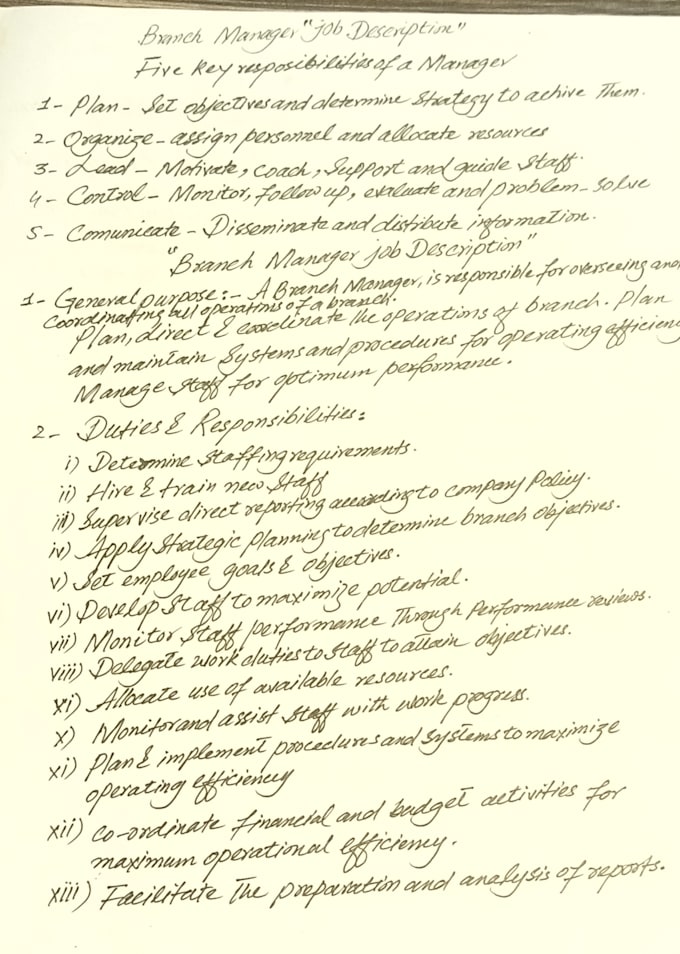 Branch Manager "job Description"
Five key resposibilities of a Manager
1- Plan - Set objectives and determine strategy to achive Them.
2- Organize - assign personnel and allocate resources
3- Lead - Motivate, coach, Support and guide staff.
4- Control - Monitor, follow up, evaluate and problem-solve
5- Comunicate - Disseminate and distribute information.
"Branch Manager job Description"
1- General purpose:- A Branch Manager, is responsible for overseeing and
coordinatting all operations of a branch.
Plan, direct & coordinate the operations of branch. Plan
and maintain Systems and procedures for operating efficiency
Manage staff for optimum performance.
2- Duties & Responsibilities:
i) Determine staffing requirements.
ii) Hire & train new Staff
iii) Supervise direct reporting according to company Policy.
iv) Apply Strategic Planning to determine branch objectives.
v) Set employee goals & objectives.
vi) Develop Staff to maximize potential.
vii) Monitor Staff performance Through Performance reviews.
viii) Delegate work duties to Staff to attain objectives.
xi) Allocate use of available resources.
x) Monitor and assist Staff with work progress.
xi) Plan & implement procedures and Systems to maximize
operating efficiency
xii) co-ordinate financial and budget activities for
maximum operational efficiency.
xiii) Facilitate The preparation and analysis of reports.